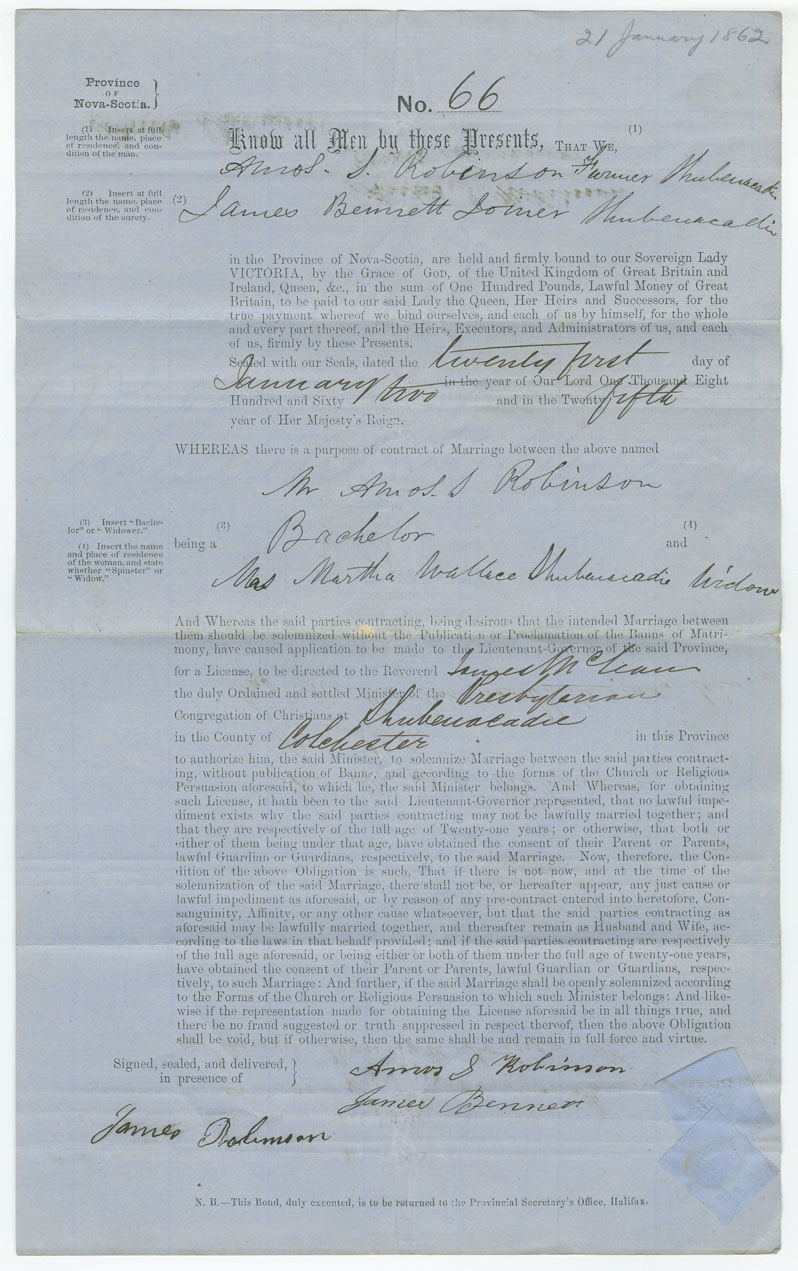 21 January 1862
Province
OF
Nova-Scotia.
No. 66
(1) Insert at full
length the name, place
of residence, and con-
dition of the man.
Know all Men by these Presents, THAT WE, (1)
Amos. S. Robinson Farmer Shubenacadie
(2) Insert at full
length the name, place
of residence, and con-
dition of the surety.
(2) James Bennett Joiner Shubenacadie
in the Province of Nova-Scotia, are held and firmly bound to our Sovereign Lady
VICTORIA, by the Grace of GOD, of the United Kingdom of Great Britain and
Ireland, Queen, &c., in the sum of One Hundred Pounds, Lawful Money of Great
Britain, to be paid to our said Lady the Queen, Her Heirs and Successors, for the
true payment whereof we bind ourselves, and each of us by himself, for the whole
and every part thereof, and the Heirs, Executors, and Administrators of us, and each
of us, firmly by these Presents.
Sealed with our Seals, dated the twenty first day of
January in the year of Our Lord One Thousand Eight
Hundred and Sixty two and in the Twenty fifth
year of Her Majesty's Reign.
WHEREAS there is a purpose of contract of Marriage between the above named
Mr Amos. S Robinson
(3) Insert "Bache-
lor" or "Widower."
(4) Insert the name
and place of residence
of the woman, and state
whether "Spinster" or
"Widow."
being a (3) Bachelor and (4)
Mrs Martha Wallace Shubenacadie Widow
And Whereas the said parties contracting, being desirous that the intended Marriage between
them should be solemnized without the Publicati n or Proclamation of the Banns of Matri-
mony, have caused application to be made to the Lieutenant-Governor of the said Province,
for a License, to be directed to the Reverend James McLean
the duly Ordained and settled Minister of the Presbyterian
Congregation of Christians at Shubenacadie
in the County of Colchester in this Province
to authorize him, the said Minister, to solemnize Marriage between the said parties contract-
ing, without publication of Banns, and according to the forms of the Church or Religious
Persuasion aforesaid, to which he, the said Minister belongs. And Whereas, for obtaining
such License, it hath been to the said Lieutenant-Governor represented, that no lawful impe-
diment exists why the said parties contracting may not be lawfully married together; and
that they are respectively of the full age of Twenty-one years; or otherwise, that both or
either of them being under that age, have obtained the consent of their Parent or Parents,
lawful Guardian or Guardians, respectively, to the said Marriage. Now, therefore, the Con-
dition of the above Obligation is such, That if there is not now, and at the time of the
solemnization of the said Marriage, there shall not be, or hereafter appear, any just cause or
lawful impediment as aforesaid, or by reason of any pre-contract entered into heretofore, Con-
sanguinity, Affinity, or any other cause whatsoever, but that the said parties contracting as
aforesaid may be lawfully married together, and thereafter remain as Husband and Wife, ac-
cording to the laws in that behalf provided; and if the said parties contracting are respectively
of the full age aforesaid, or being either or both of them under the full age of twenty-one years,
have obtained the consent of their Parent or Parents, lawful Guardian or Guardians, respec-
tively, to such Marriage: And further, if the said Marriage shall be openly solemnized according
to the Forms of the Church or Religious Persuasion to which such Minister belongs: And like-
wise if the representation made for obtaining the License aforesaid be in all things true, and
there be no fraud suggested or truth suppressed in respect thereof, then the above Obligation
shall be void, but if otherwise, then the same shall be and remain in full force and virtue.
Signed, sealed, and delivered,
in presence of
Amos S Robinson
James Bennett
James Robinson
N. B.—This Bond, duly executed, is to be returned to the Provincial Secretary's Office, Halifax.